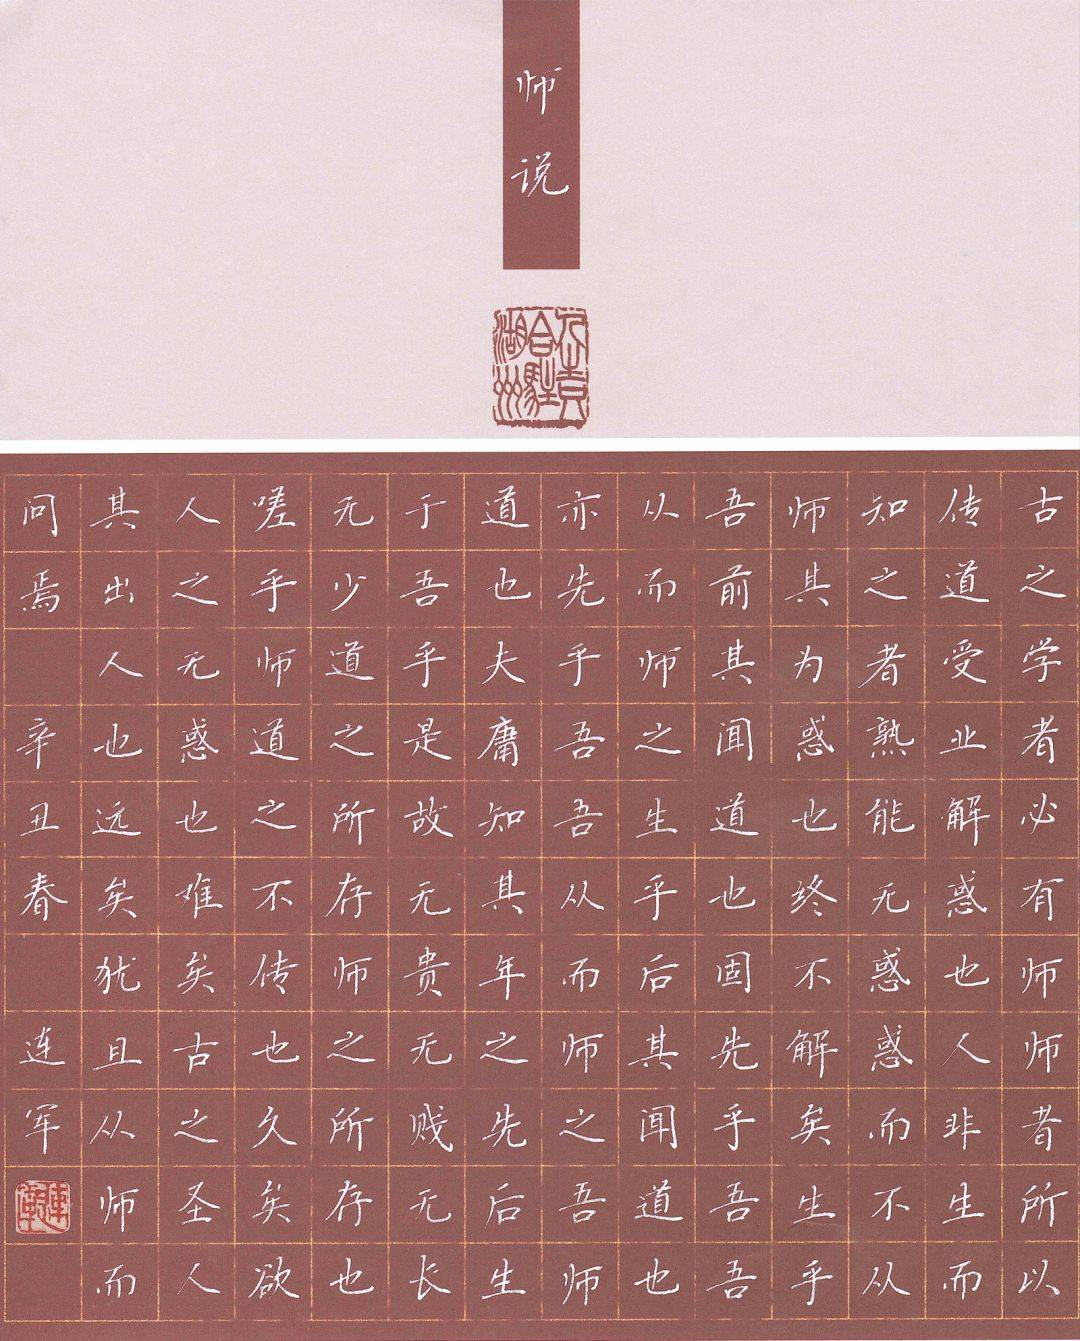 师说
古之学者必有师师者所以
传道受业解惑也人非生而
知之者熟能无惑惑而不从
师其为惑也终不解矣生乎
吾前其闻道也固先乎吾吾
从而师之生乎后其闻道也
亦先乎吾吾从而师之吾师
道也夫庸知其年之先后生
于吾乎是故无贵无贱无长
无少道之所存师之所存也
嗟乎师道之不传也久矣欲
人之无惑也难矣古之圣人
其出人也远矣犹且从师而
问焉 辛丑春 连军
連軍